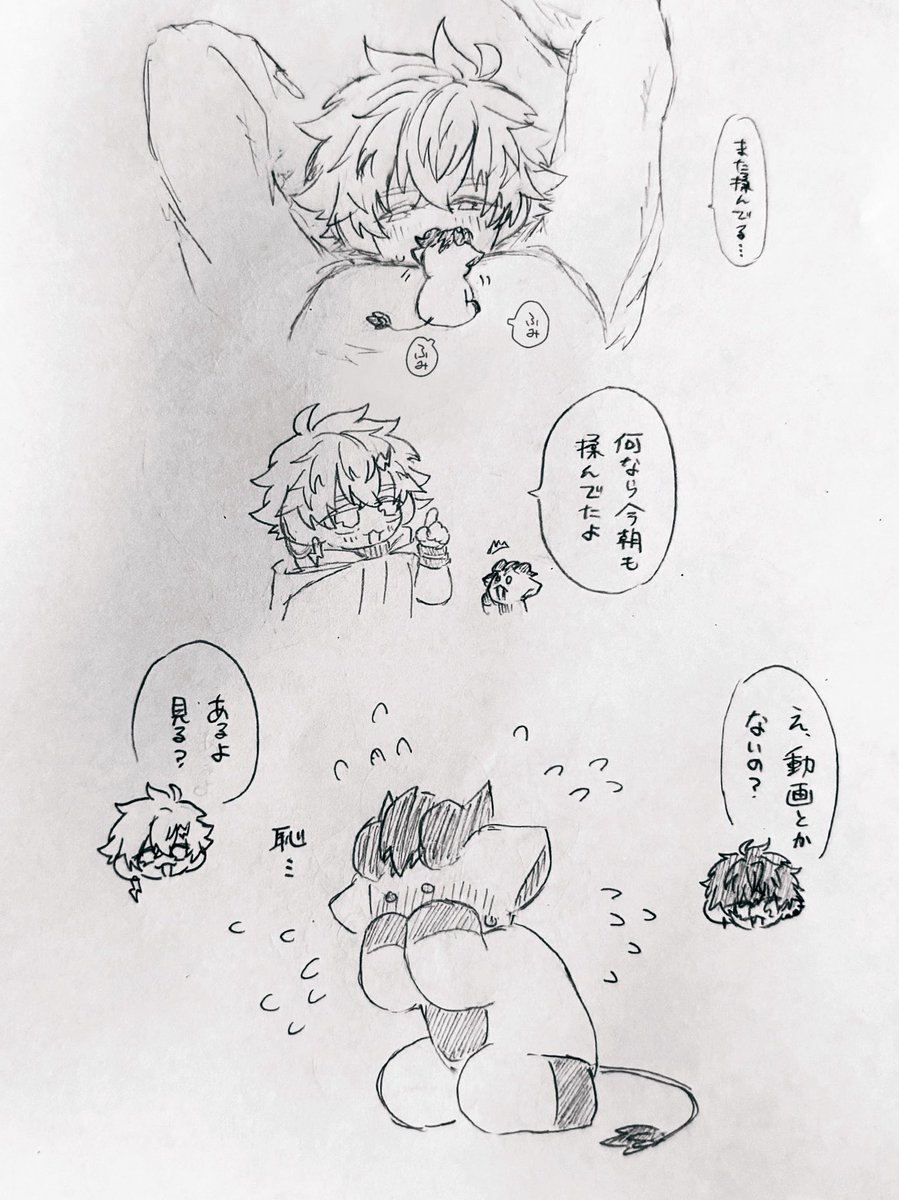 また揉んでる…
ふみ
ふみ
何なら今朝も
揉んでたよ
え、動画とか
ないの?
あるよ
見る?
恥…